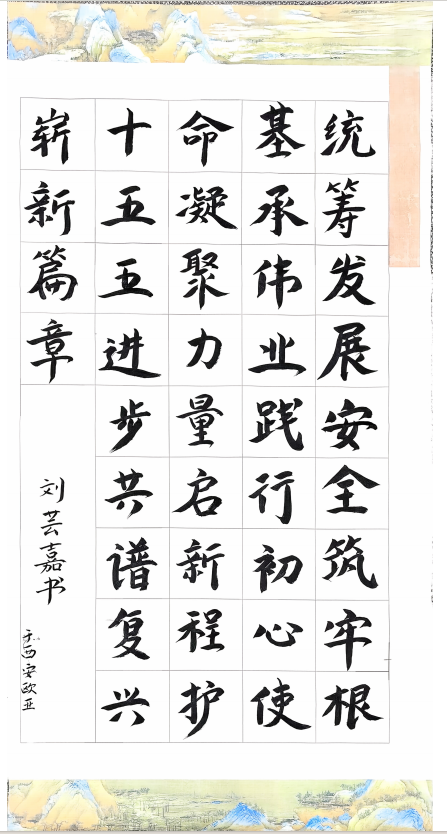 统筹发展安全筑牢根
基承伟业践行初心使
命凝聚力量启新程护
十五五进步共谱复兴
崭新篇章
刘芸嘉书
于西安欧亚